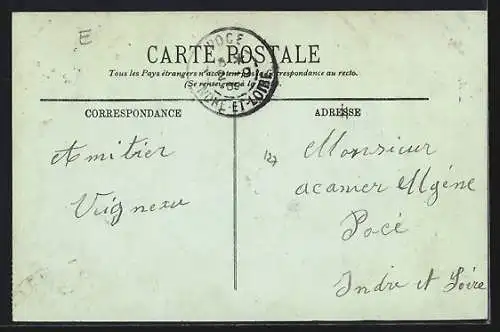 E
CARTE POSTALE
Tous les Pays étrangers n'acceptent pas la Correspondance au recto.
(Se renseigner à la
POCE
INDRE-ET-LOIRE
CORRESPONDANCE
ADRESSE
Amitier
127
Monsieur
Pocé
Indre et Loire